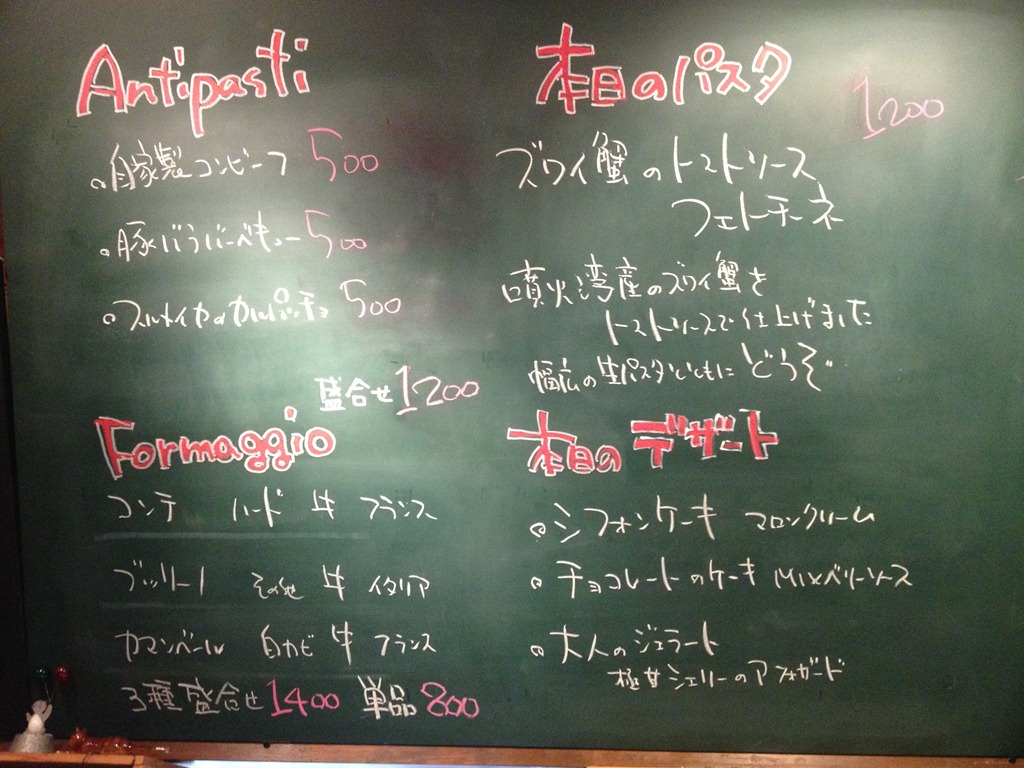 Antipasti
自家製コンビーフ 500
豚バラバーベキュー 500
スルメイカのカルパッチョ 500
盛合せ 1200
Formaggio
コンテ ハード 牛 フランス
ブッリーノ その他 牛 イタリア
カマンベール 白カビ 牛 フランス
3種盛合せ 1400 単品 800
本日のパスタ
1200
ズワイ蟹のトマトソース
フェトチーネ
噴火湾産のズワイ蟹を
トマトソースで仕上げました
幅広の生パスタとともにどうぞ
本日のデザート
シフォンケーキ マロンクリーム
チョコレートのケーキ MIXベリーソース
大人のジェラート
極甘シェリーのアフォガード